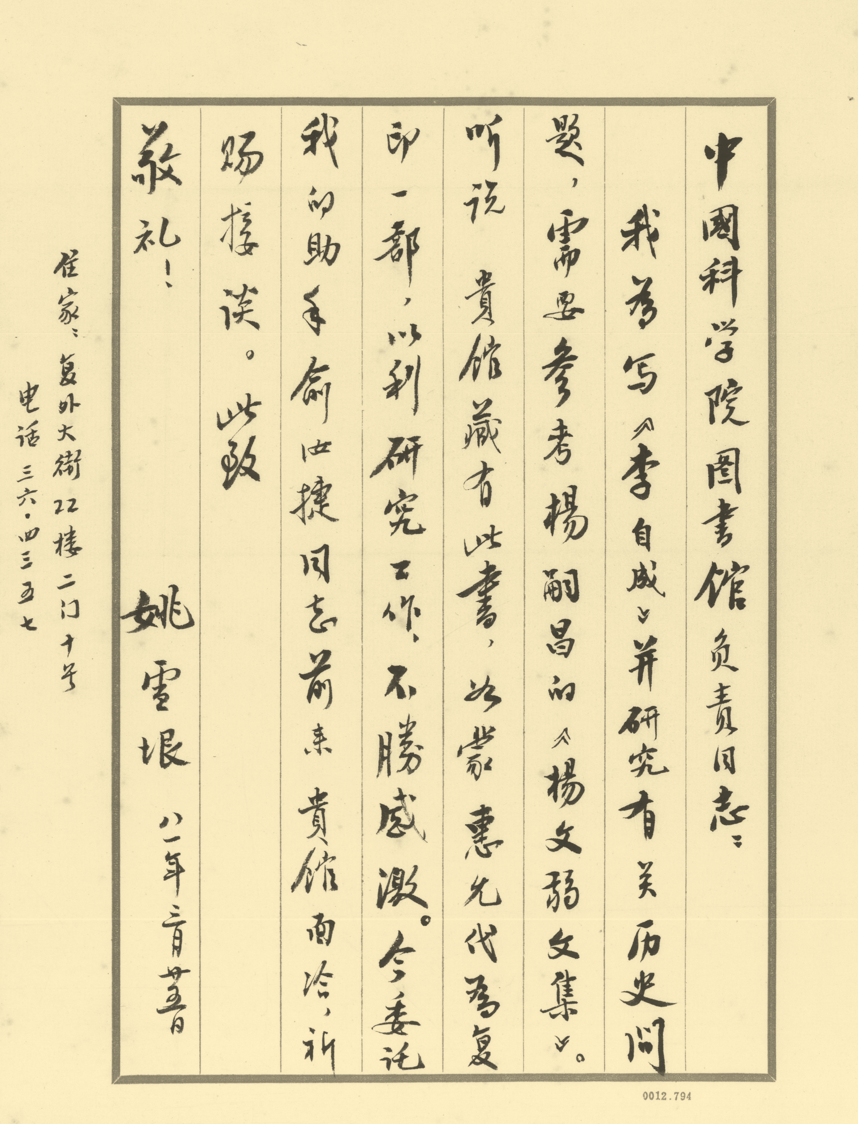 中國科学院图書館负责同志：
我為写《李自成》并研究有关历史问
题，需要参考楊嗣昌的《楊文弱文集》。
听说 貴館藏有此書，如蒙惠允代為复
印一部，以利研究工作，不勝感激。今委託
我的助手俞汝捷同志前来 貴館面洽，祈
赐接谈。此致
敬礼！
姚雪垠 八一年三月廿五日
住家：复外大街22楼二门十号
电话 三六·四三五七
0012.794